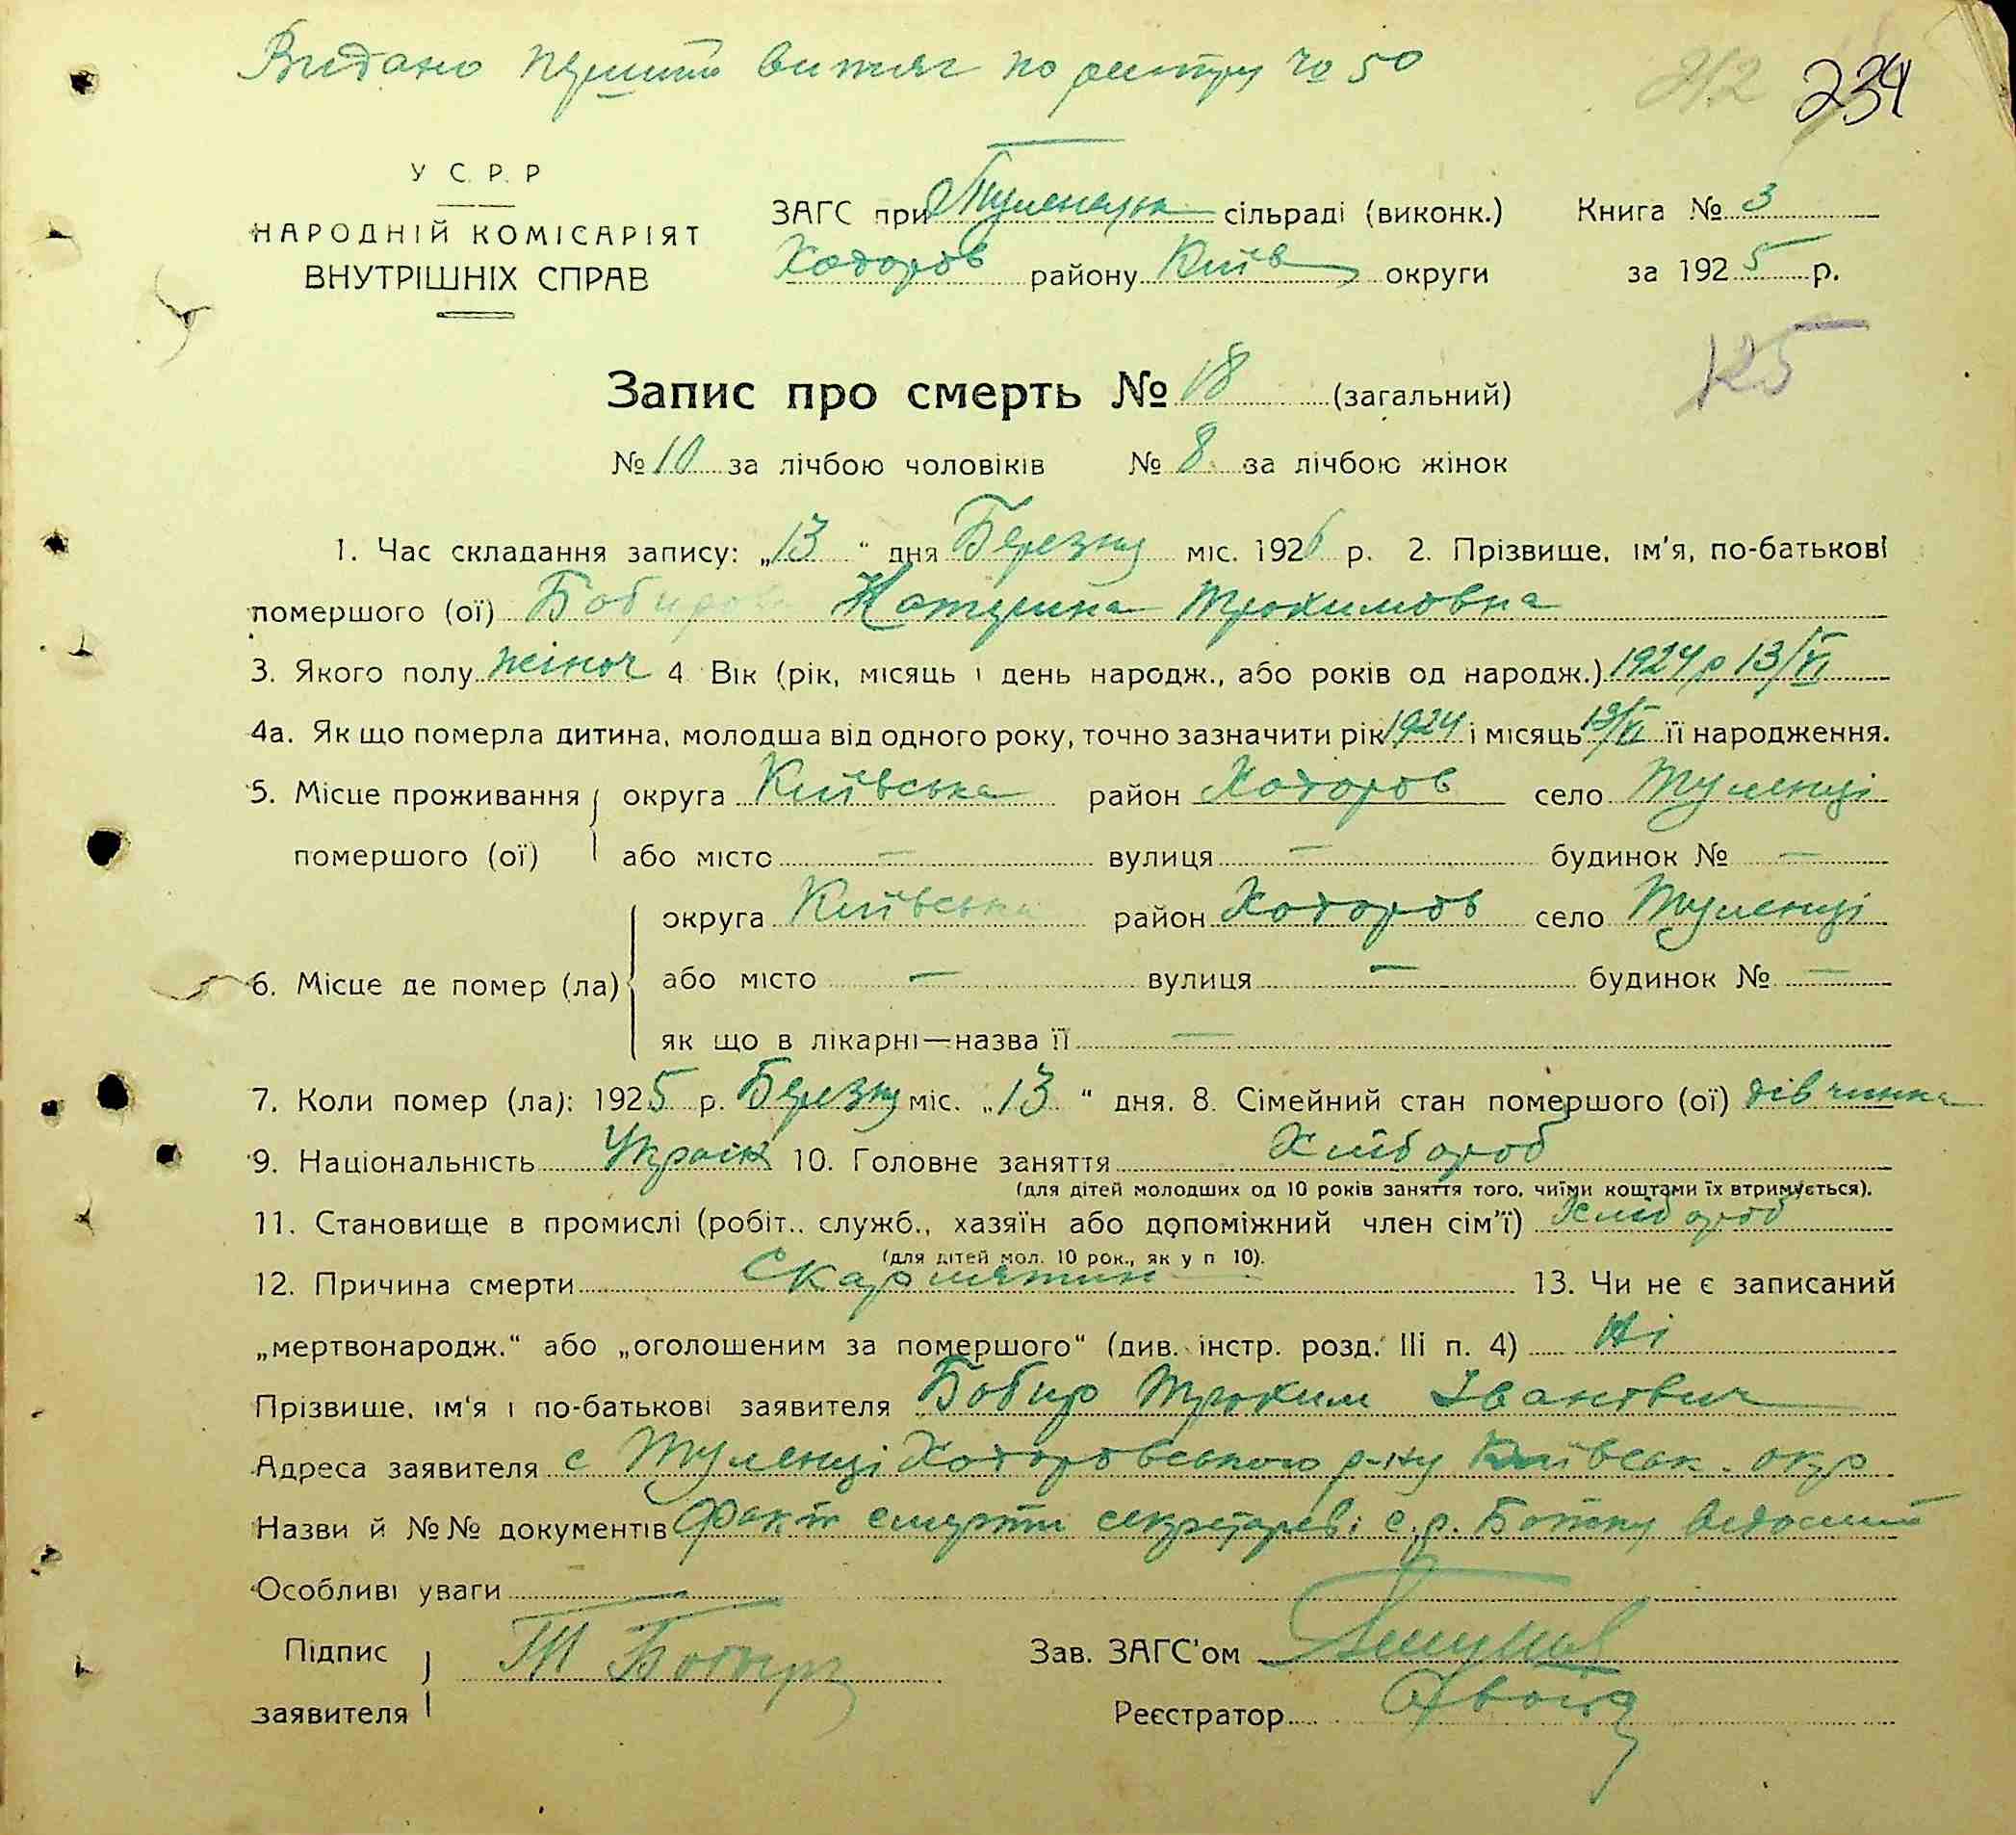 Видано перший витяг по реєстру № 50
212 234
У С. Р. Р
НАРОДНІЙ КОМІСАРІЯТ
ВНУТРІШНІХ СПРАВ
ЗАГС при сільраді (виконк.)
Ходоров району Київ округи
Книга № 3
за 1925 р.
125
Запис про смерть № 18 (загальний)
№ 10 за лічбою чоловіків № 8 за лічбою жінок
1. Час складання запису: „13" дня Березня міс. 1926 р. 2. Прізвище, ім'я, по-батькові
помершого (ої) Бобирова Катерина Трохимовна
3. Якого полу жіноч 4 Вік (рік, місяць і день народж., або років од народж.) 1924 р 13/VI
4а. Як що померла дитина, молодша від одного року, точно зазначити рік 1924 і місяць 13/VI її народження.
5. Місце проживання округа Київська район Ходоров село Туленці
помершого (ої) або місто — вулиця — будинок № —
округа Київська район Ходоров село Тулинці
6. Місце де помер (ла) або місто — вулиця — будинок № —
як що в лікарні—назва її —
7. Коли помер (ла): 1925 р. Березня міс. „13" дня. 8. Сімейний стан помершого (ої) дівчинка
9. Національність Україн 10. Головне заняття Хлібороб
(для дітей молодших од 10 років заняття того, чиїми коштами їх втримується).
11. Становище в промислі (робіт., служб., хазяїн або допоміжний член сім'ї) Хлібороб
(для дітей мол. 10 рок., як у п 10).
12. Причина смерти Скарлятин 13. Чи не є записаний
„мертвонародж." або „оголошеним за помершого" (див. інстр. розд. III п. 4) Ні
Прізвище, ім'я і по-батькові заявителя Бобир Трохим Іванович
Адреса заявителя с Туленці Ходоровського р-ну Київськ. окр
Назви й №№ документів Факт смерти секретареві с.р. відомий
Особливі уваги —
Підпис Т Бобир Зав. ЗАГС'ом
заявителя Реєстратор